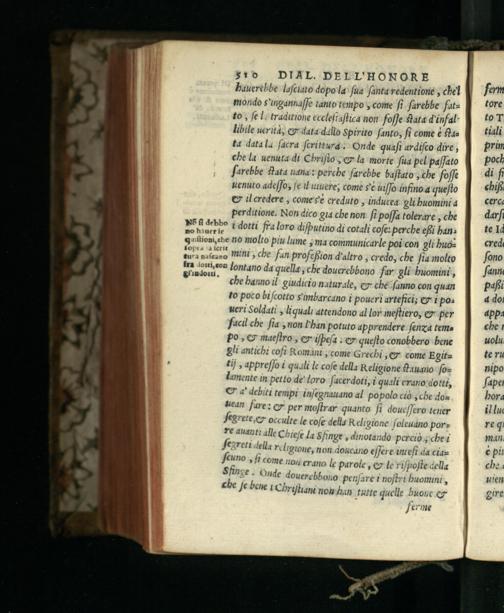 510 DIAL. DELL'HONORE
hauerebbe lasciato dopo la sua santa redentione, che'l
mondo s'ingannasse tanto tempo, come si sarebbe fat-
to, se l. traditione ecclesiastica non fosse stata d'infal-
libile uerità, & data dallo Spirito santo, si come è sta-
ta data la sacra scrittura. Onde quasi ardisco dire,
che la uenuta di Christo, & la morte sua pel passato
sarebbe stata uana: perche sarebbe bastato, che fosse
uenuto adesso, se il uiuere, come s'è uisso infino a questo
& il credere, come s'è creduto, inducea gli huomini a
perditione. Non dico gia che non si possa tolerare, che
i dotti fra loro disputino di cotali cose: perche essi han-
no molto piu lume, ma communicarle poi con gli huo-
mini, che fan professïon d'altro, credo, che sia molto
lontano da quella, che douerebbono far gli huomini,
che hanno il giudicio naturale, & che sanno con quan
to poco biscotto s'imbarcano i poueri artefici; & i po-
ueri Soldati, liquali attendono al lor mestiero, & per
facil che sia, non l'han potuto apprendere senza tem-
po, & maestro, & ispesa. & questo conobbero bene
gli antichi cosi Romani, come Greci, & come Egit-
tij, appresso i quali le cose della Religione stauano so-
lamente in petto de' loro sacerdoti, i quali erano dotti,
& a' debiti tempi insegnauano al popolo ciò, che do-
uean fare: & per mostrar quanto si douessero tener
segrete, & occulte le cose della Religione soleuano por-
re auanti alle Chiese la Sfinge, dinotando perciò, che i
segreti della religione, non doueano essere intesi da cia-
scuno, si come non erano le parole, & le risposte della
Sfinge. Onde douerebbono pensare i nostri huomini,
che se bene i Christiani non han tutte quelle buone &
ferme
Nõ si debbo
no hauer le
quistioni, che
sopra la scrit
tura nascano
fra dotti, con
gl'indotti.